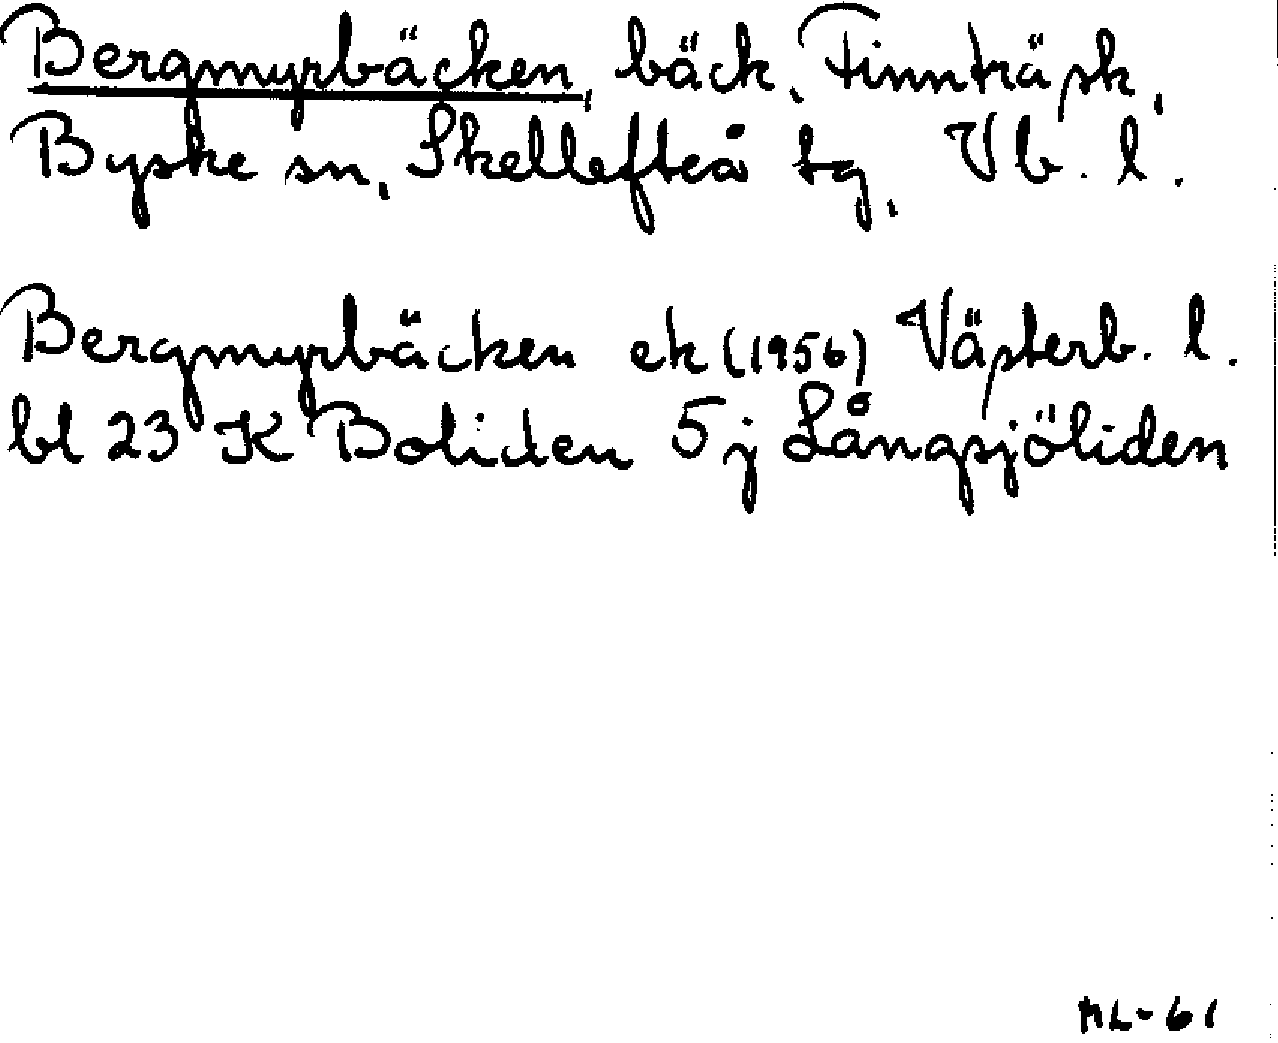 Bergmyrbäcken, bäck, Finnträsk,
Byske sn, Skellefteå tg, Vb. l.
Bergmyrbäcken ek (1956) Västerb. l.
bl 23 K Boliden 5 j Långsjöliden
ML-61